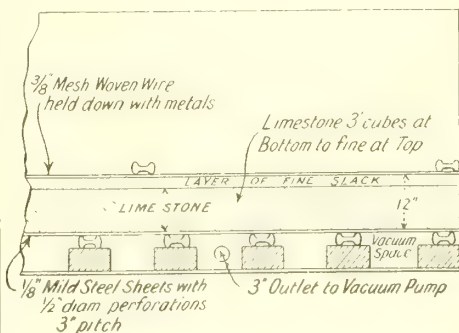 3/8" Mesh Woven Wire
held down with metals
Limestone 3" cubes at
Bottom to fine at Top
LAYER OF FINE SLACK
LIME STONE
12"
Vacuum
Space
1/8" Mild Steel Sheets with
1/2" diam perforations
3" pitch
3" Outlet to Vacuum Pump